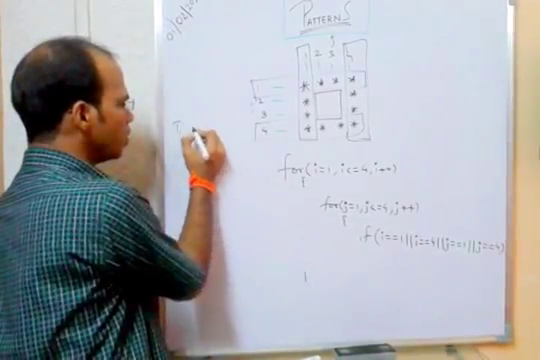 01/02/20
PATTERNS
j
1 2 3 4
* * * *
2 * *
3 * *
4 * * * *
for(i=1, i<=4, i++)
{
for(j=1, j<=4, j++)
{
if(i==1||i==4||j==1||j==4)
T